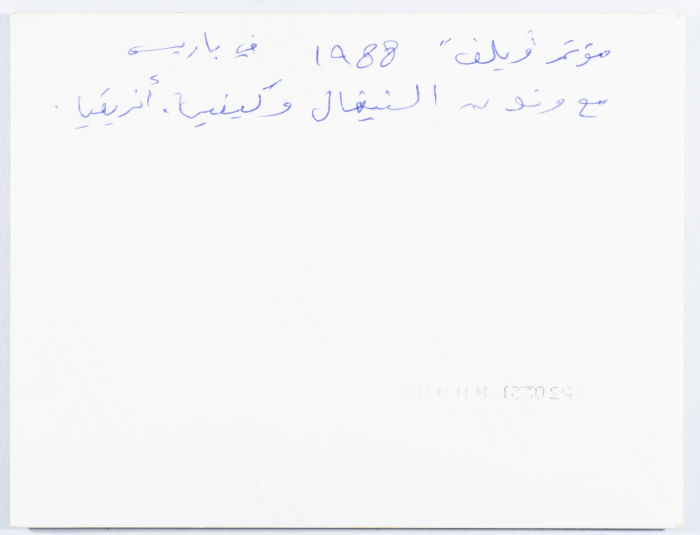 مؤتمر "ويلف" 1988 في باريس
مع وفود من السنيغال وكينيا. أفريقيا.